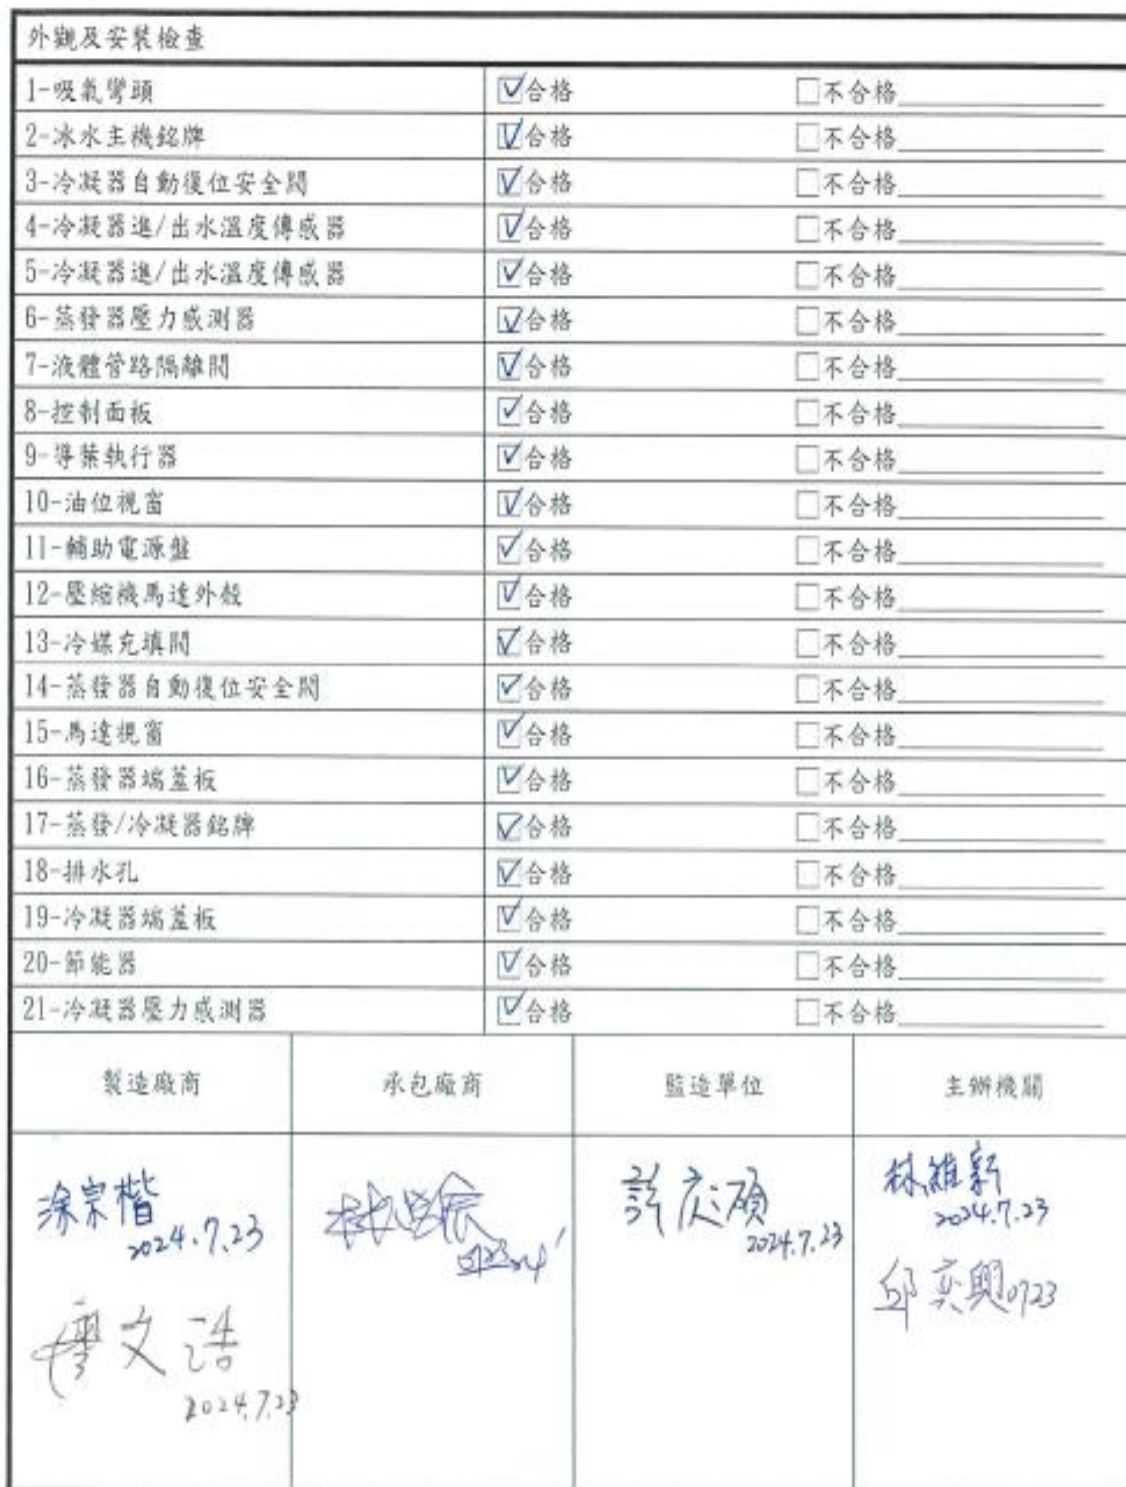 外觀及安裝檢查
1-吸氣彎頭 ☑合格 □不合格
2-冰水主機銘牌 ☑合格 □不合格
3-冷凝器自動復位安全閥 ☑合格 □不合格
4-冷凝器進/出水溫度傳感器 ☑合格 □不合格
5-冷凝器進/出水溫度傳感器 ☑合格 □不合格
6-蒸發器壓力感測器 ☑合格 □不合格
7-液體管路隔離閥 ☑合格 □不合格
8-控制面板 ☑合格 □不合格
9-導葉執行器 ☑合格 □不合格
10-油位視窗 ☑合格 □不合格
11-輔助電源盤 ☑合格 □不合格
12-壓縮機馬達外殼 ☑合格 □不合格
13-冷媒充填閥 ☑合格 □不合格
14-蒸發器自動復位安全閥 ☑合格 □不合格
15-馬達視窗 ☑合格 □不合格
16-蒸發器端蓋板 ☑合格 □不合格
17-蒸發/冷凝器銘牌 ☑合格 □不合格
18-排水孔 ☑合格 □不合格
19-冷凝器端蓋板 ☑合格 □不合格
20-節能器 ☑合格 □不合格
21-冷凝器壓力感測器 ☑合格 □不合格
製造廠商 承包廠商 監造單位 主辦機關
涂宗楷
2024.7.23
廖文浩
2024.7.23
2024.7.23
林維新
2024.7.23
邱奕興0723